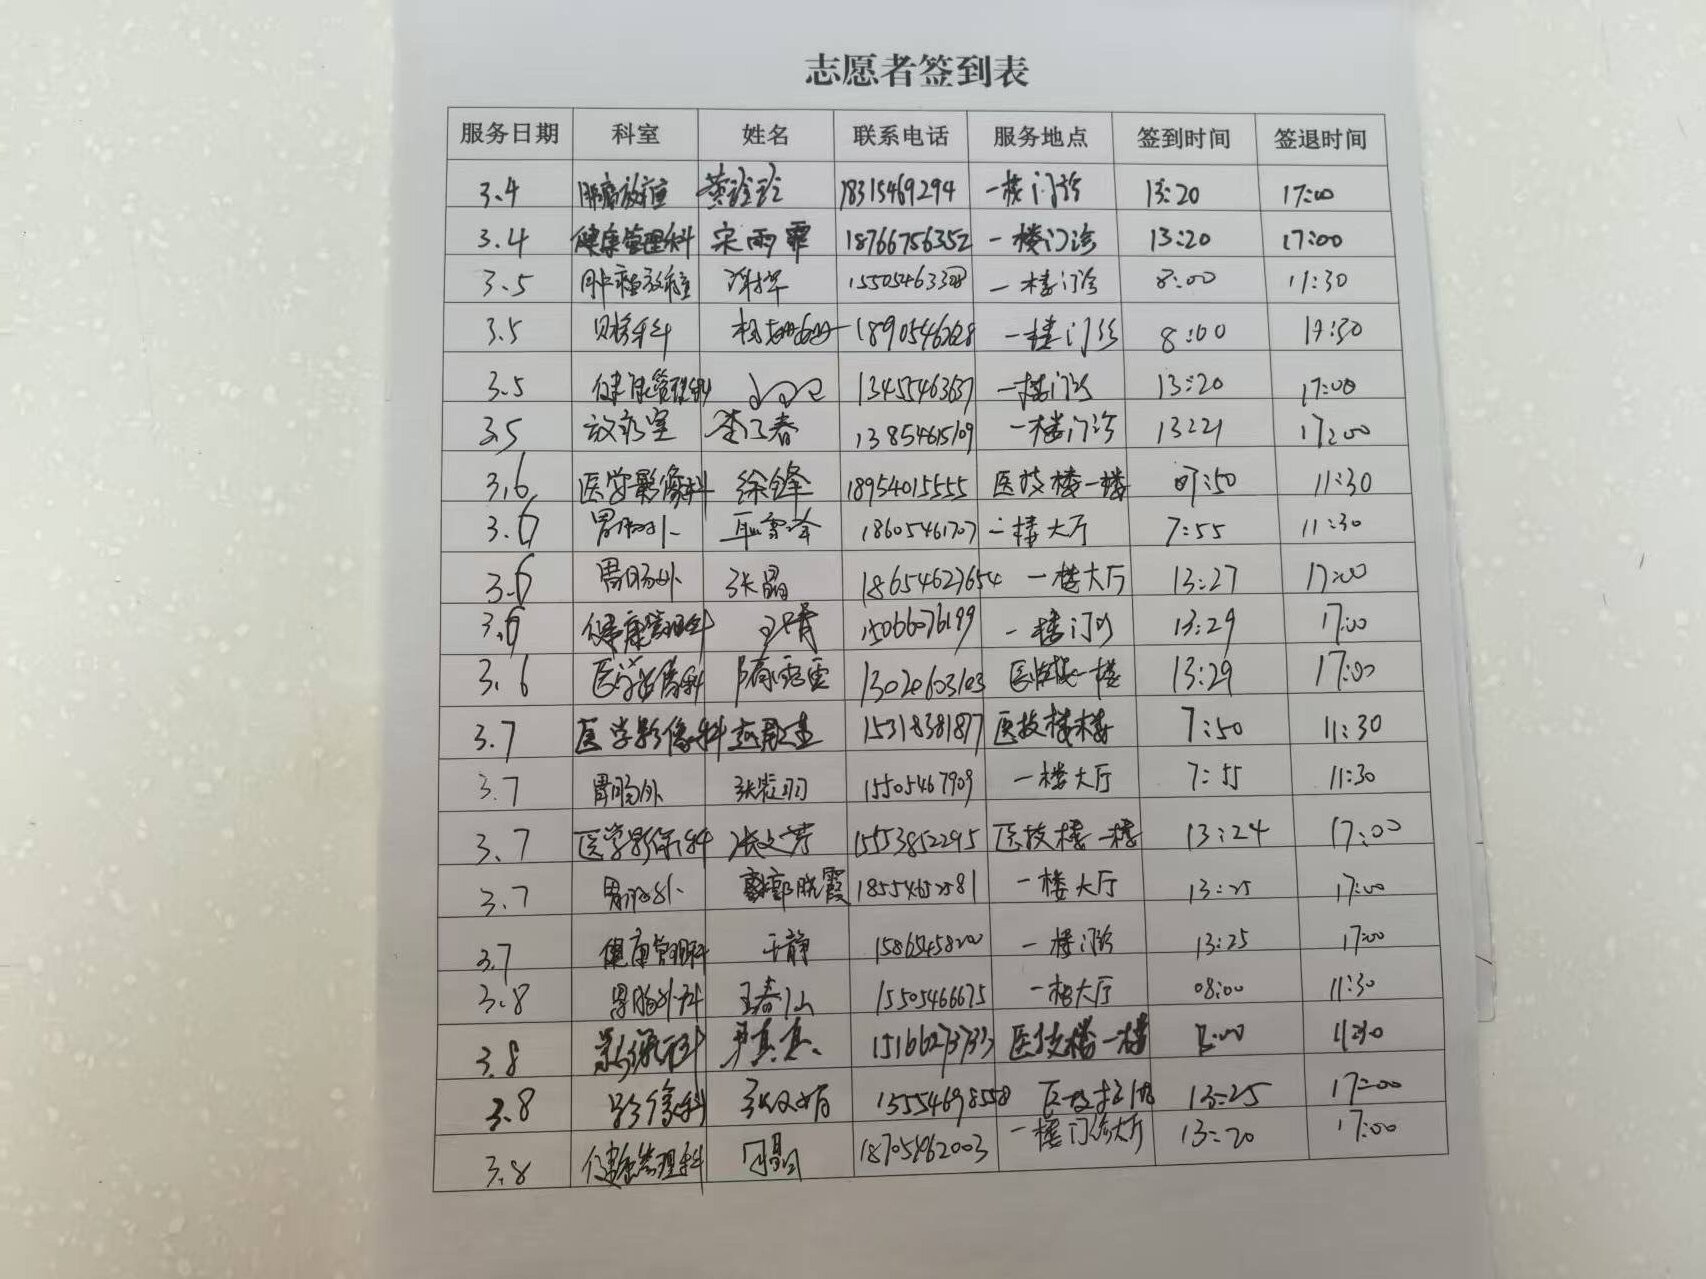 志愿者签到表
服务日期 科室 姓名 联系电话 服务地点 签到时间 签退时间
3.4 肿瘤放疗 黄珍珍 18315469294 一楼门诊 13:20 17:00
3.4 健康管理科 宋雨霏 18766756352 一楼门诊 13:20 17:00
3.5 肿瘤放疗 一楼门诊 8:00 11:30
3.5 财务科 一楼门诊 8:00 11:30
3.5 健康管理科 13455463637 一楼门诊 13:20 17:00
3.5 放疗室 13854615109 一楼门诊 13:21 17:00
3.6 医学影像科 徐锋 18954015555 医技楼一楼 07:50 11:30
3.6 胃肠外 18605461707 一楼大厅 7:55 11:30
3.6 胃肠外 张晶 18654627654 一楼大厅 13:27 17:00
3.6 健康管理科 15066076199 一楼门诊 13:29 17:00
3.6 医学影像科 13020603103 医技楼一楼 13:29 17:00
3.7 医学影像科 15318381877 医技楼楼 7:50 11:30
3.7 胃肠外 15505467909 一楼大厅 7:55 11:30
3.7 医学影像科 张文芳 15553852295 医技楼一楼 13:24 17:00
3.7 胃肠外 郭晓霞 18554652581 一楼大厅 13:25 17:00
3.7 健康管理科 于静 一楼门诊 13:25 17:00
3.8 胃肠外科 王春仙 15505466675 一楼大厅 08:00 11:30
3.8 影像科 尹真真 医技楼一楼 8:00 11:30
3.8 影像科 15554698558 13:25 17:00
3.8 健康管理科 18705462003 一楼门诊大厅 13:20 17:00